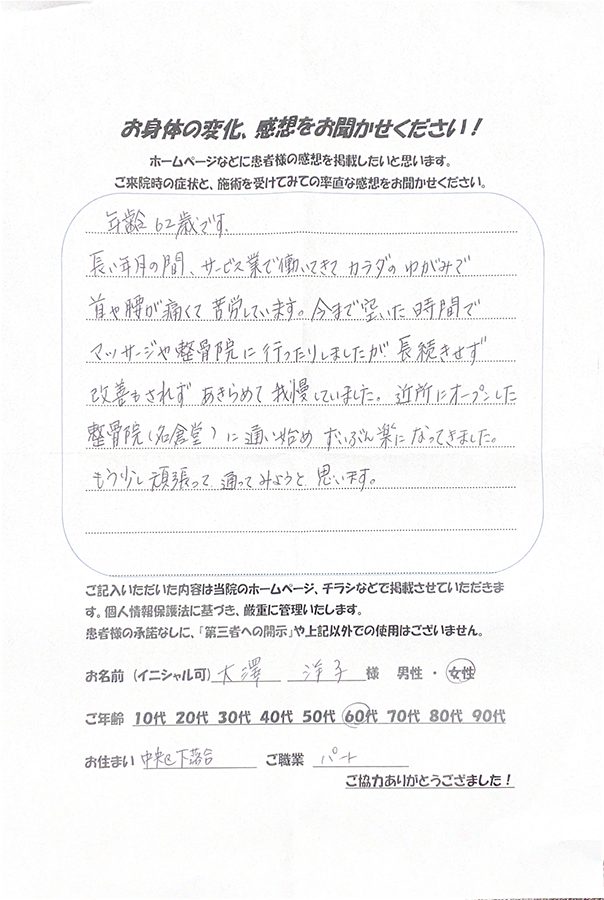 お身体の変化、感想をお聞かせください！
ホームページなどに患者様の感想を掲載したいと思います。
ご来院時の症状と、施術を受けてみての率直な感想をお聞かせください。
年齢62歳です。
長い年月の間、サービス業で働いてきて カラダの ゆがみで
首や腰が痛くて 苦労しています。今まで空いた時間で
マッサージや整骨院に行ったりしましたが 長続きせず
改善もされず あきらめて 我慢していました。近所にオープンした
整骨院(名倉堂)に通い始め ずいぶん楽になってきました。
もう少し頑張って 通ってみようと 思います。
ご記入いただいた内容は当院のホームページ、チラシなどで掲載させていただきま
す。個人情報保護法に基づき、厳重に管理いたします。
患者様の承諾なしに、「第三者への開示」や上記以外での使用はございません。
お名前（イニシャル可） 大澤 洋子 様 男性 ・ 女性
ご年齢 10代 20代 30代 40代 50代 60代 70代 80代 90代
お住まい 中央区下落合 ご職業 パート
ご協力ありがとうござました！